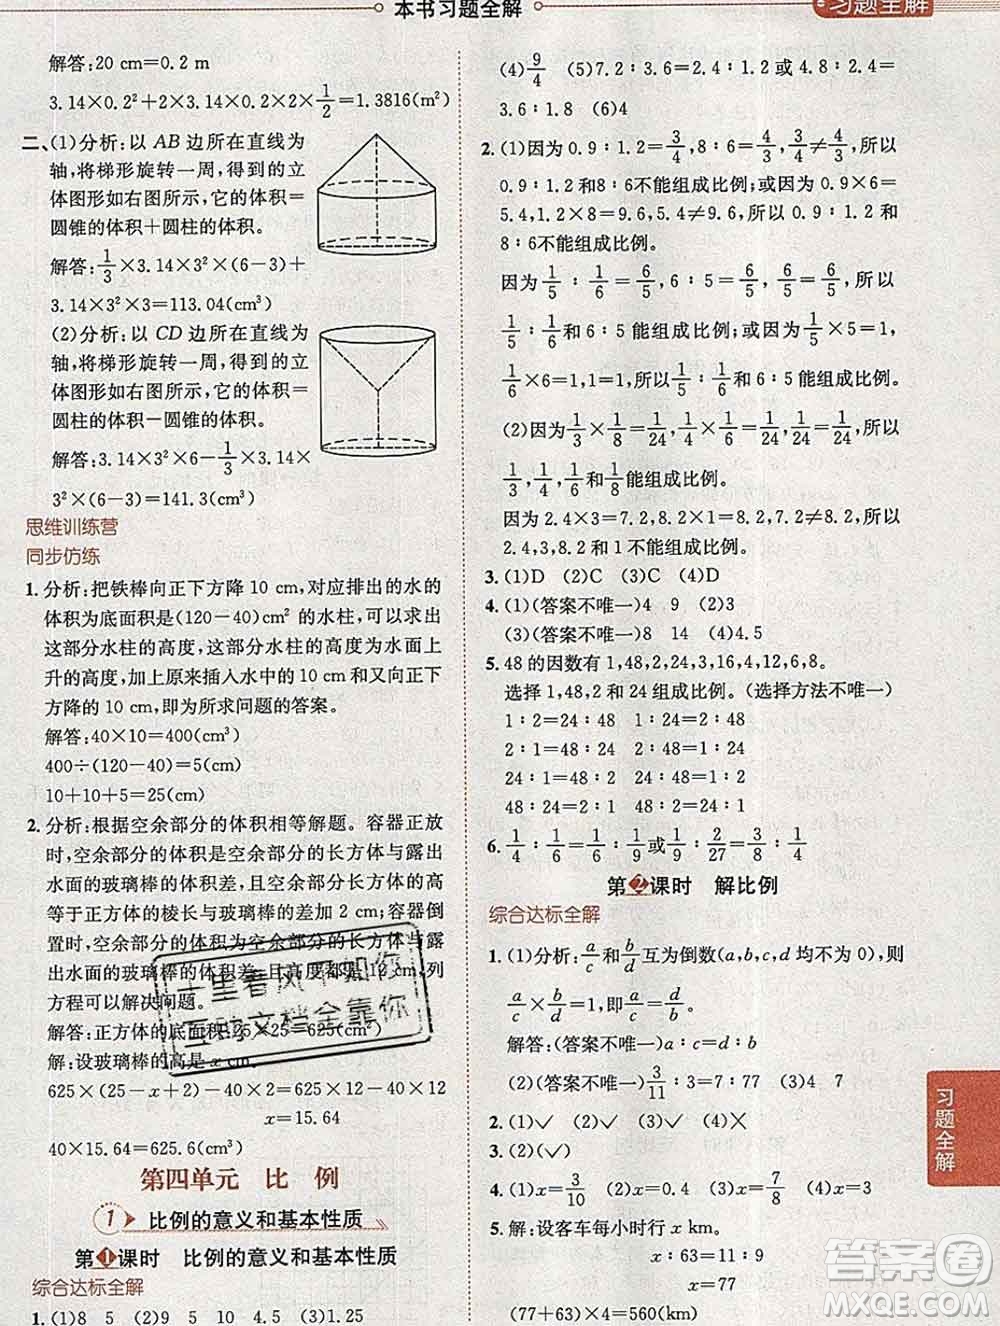 本书习题全解
习题全解
解答:20 cm=0.2 m
3.14×0.2²+2×3.14×0.2×2×1/2=1.3816(m²)
二、(1)分析:以 AB 边所在直线为
轴,将梯形旋转一周,得到的立
体图形如右图所示,它的体积=
圆锥的体积+圆柱的体积。
解答:1/3×3.14×3²×(6-3)+
3.14×3²×3=113.04(cm³)
(2)分析:以 CD 边所在直线为
轴,将梯形旋转一周,得到的立
体图形如右图所示,它的体积=
圆柱的体积-圆锥的体积。
解答:3.14×3²×6-1/3×3.14×
3²×(6-3)=141.3(cm³)
思维训练营
同步仿练
1.分析:把铁棒向正下方降 10 cm,对应排出的水的
体积为底面积是(120-40)cm² 的水柱,可以求出
这部分水柱的高度,这部分水柱的高度为水面上
升的高度,加上原来插入水中的 10 cm 和又向正下
方降的 10 cm,即为所求问题的答案。
解答:40×10=400(cm³)
400÷(120-40)=5(cm)
10+10+5=25(cm)
2.分析:根据空余部分的体积相等解题。容器正放
时,空余部分的体积是空余部分的长方体与露出
水面的玻璃棒的体积差,且空余部分的长方体的高
等于正方体的棱长与玻璃棒的高之差加 2 cm;容器倒
置时,空余部分的体积为空余部分的长方体与露
出水面的玻璃棒的体积差,且高度都是 12 cm,列
方程可以解决问题。
解答:正方体的底面积:25×25=625(cm²)
解:设玻璃棒的高是 x cm。
625×(25-x+2)-40×2=625×12-40×12
x=15.64
40×15.64=625.6(cm³)
第四单元 比 例
1 比例的意义和基本性质
第1课时 比例的意义和基本性质
综合达标全解
1.(1)8 15 (2)9 5 10 4.5 (3)1.25
(4)9/4 (5)7.2∶3.6=2.4∶1.2 或 4.8∶2.4=
3.6∶1.8 (6)4
2.(1)因为 0.9∶1.2=3/4,8∶6=4/3,3/4≠4/3,所以
0.9∶1.2 和8∶6不能组成比例;或因为 0.9×6=
5.4,1.2×8=9.6,5.4≠9.6,所以 0.9∶1.2 和
8∶6不能组成比例。
因为 1/5∶1/6=6/5,6∶5=6/5,6/5=6/5,所以
1/5∶1/6和 6∶5能组成比例;或因为1/5×5=1,
1/6×6=1,1=1,所以1/5∶1/6和 6∶5能组成比例。
(2)因为1/3×1/8=1/24,1/4×1/6=1/24,1/24=1/24,所以
1/3,1/4,1/6和1/8能组成比例。
因为 2.4×3=7.2,8.2×1=8.2,7.2≠8.2,所以
2.4,3,8.2 和 1 不能组成比例。
3.(1)D (2)C (3)C (4)D
4.(1)(答案不唯一)4 9 (2)3
(3)(答案不唯一)8 14 (4)4.5
5.48 的因数有 1,48,2,24,3,16,4,12,6,8。
选择 1,48,2 和 24 组成比例。(选择方法不唯一)
1∶2=24∶48 1∶24=2∶48
2∶1=48∶24 2∶48=1∶24
24∶1=48∶2 24∶48=1∶2
48∶24=2∶1 48∶2=24∶1
6.1/4∶1/6=1/6∶1/9或1/9∶2/27=3/8∶1/4
第2课时 解比例
综合达标全解
1.(1)分析:a/c和b/d互为倒数(a,b,c,d 均不为 0),则
a/c×b/d=1,即a/c=d/b。
解答:(答案不唯一)a∶c=d∶b
(2)(答案不唯一)3/11∶3=7∶77 (3)4 7
2.(1)✓ (2)✓ (3)✓ (4)×
3.(2)(✓)
4.(1)x=3/10 (2)x=0.4 (3)x=7/8 (4)x=3
5.解:设客车每小时行 x km。
x∶63=11∶9
x=77
(77+63)×4=560(km)
习题全解
千里春风不如你
互动文档全靠你
答案圈
MXQE.COM